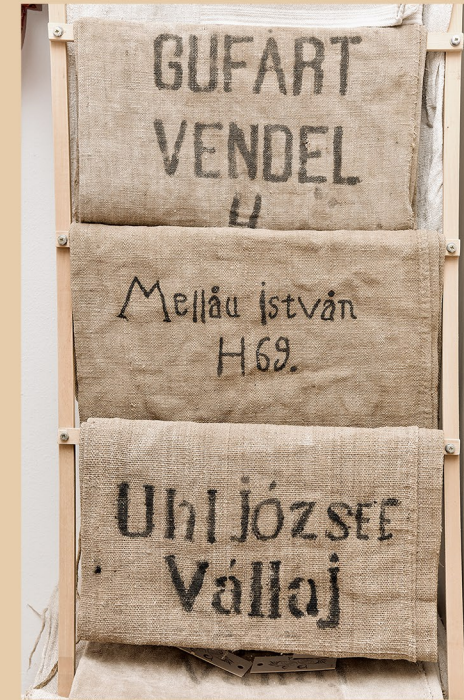 GUFÁRT
VENDEL
4
Mellău István
H 69.
Uhl JózsEF
Vállaj